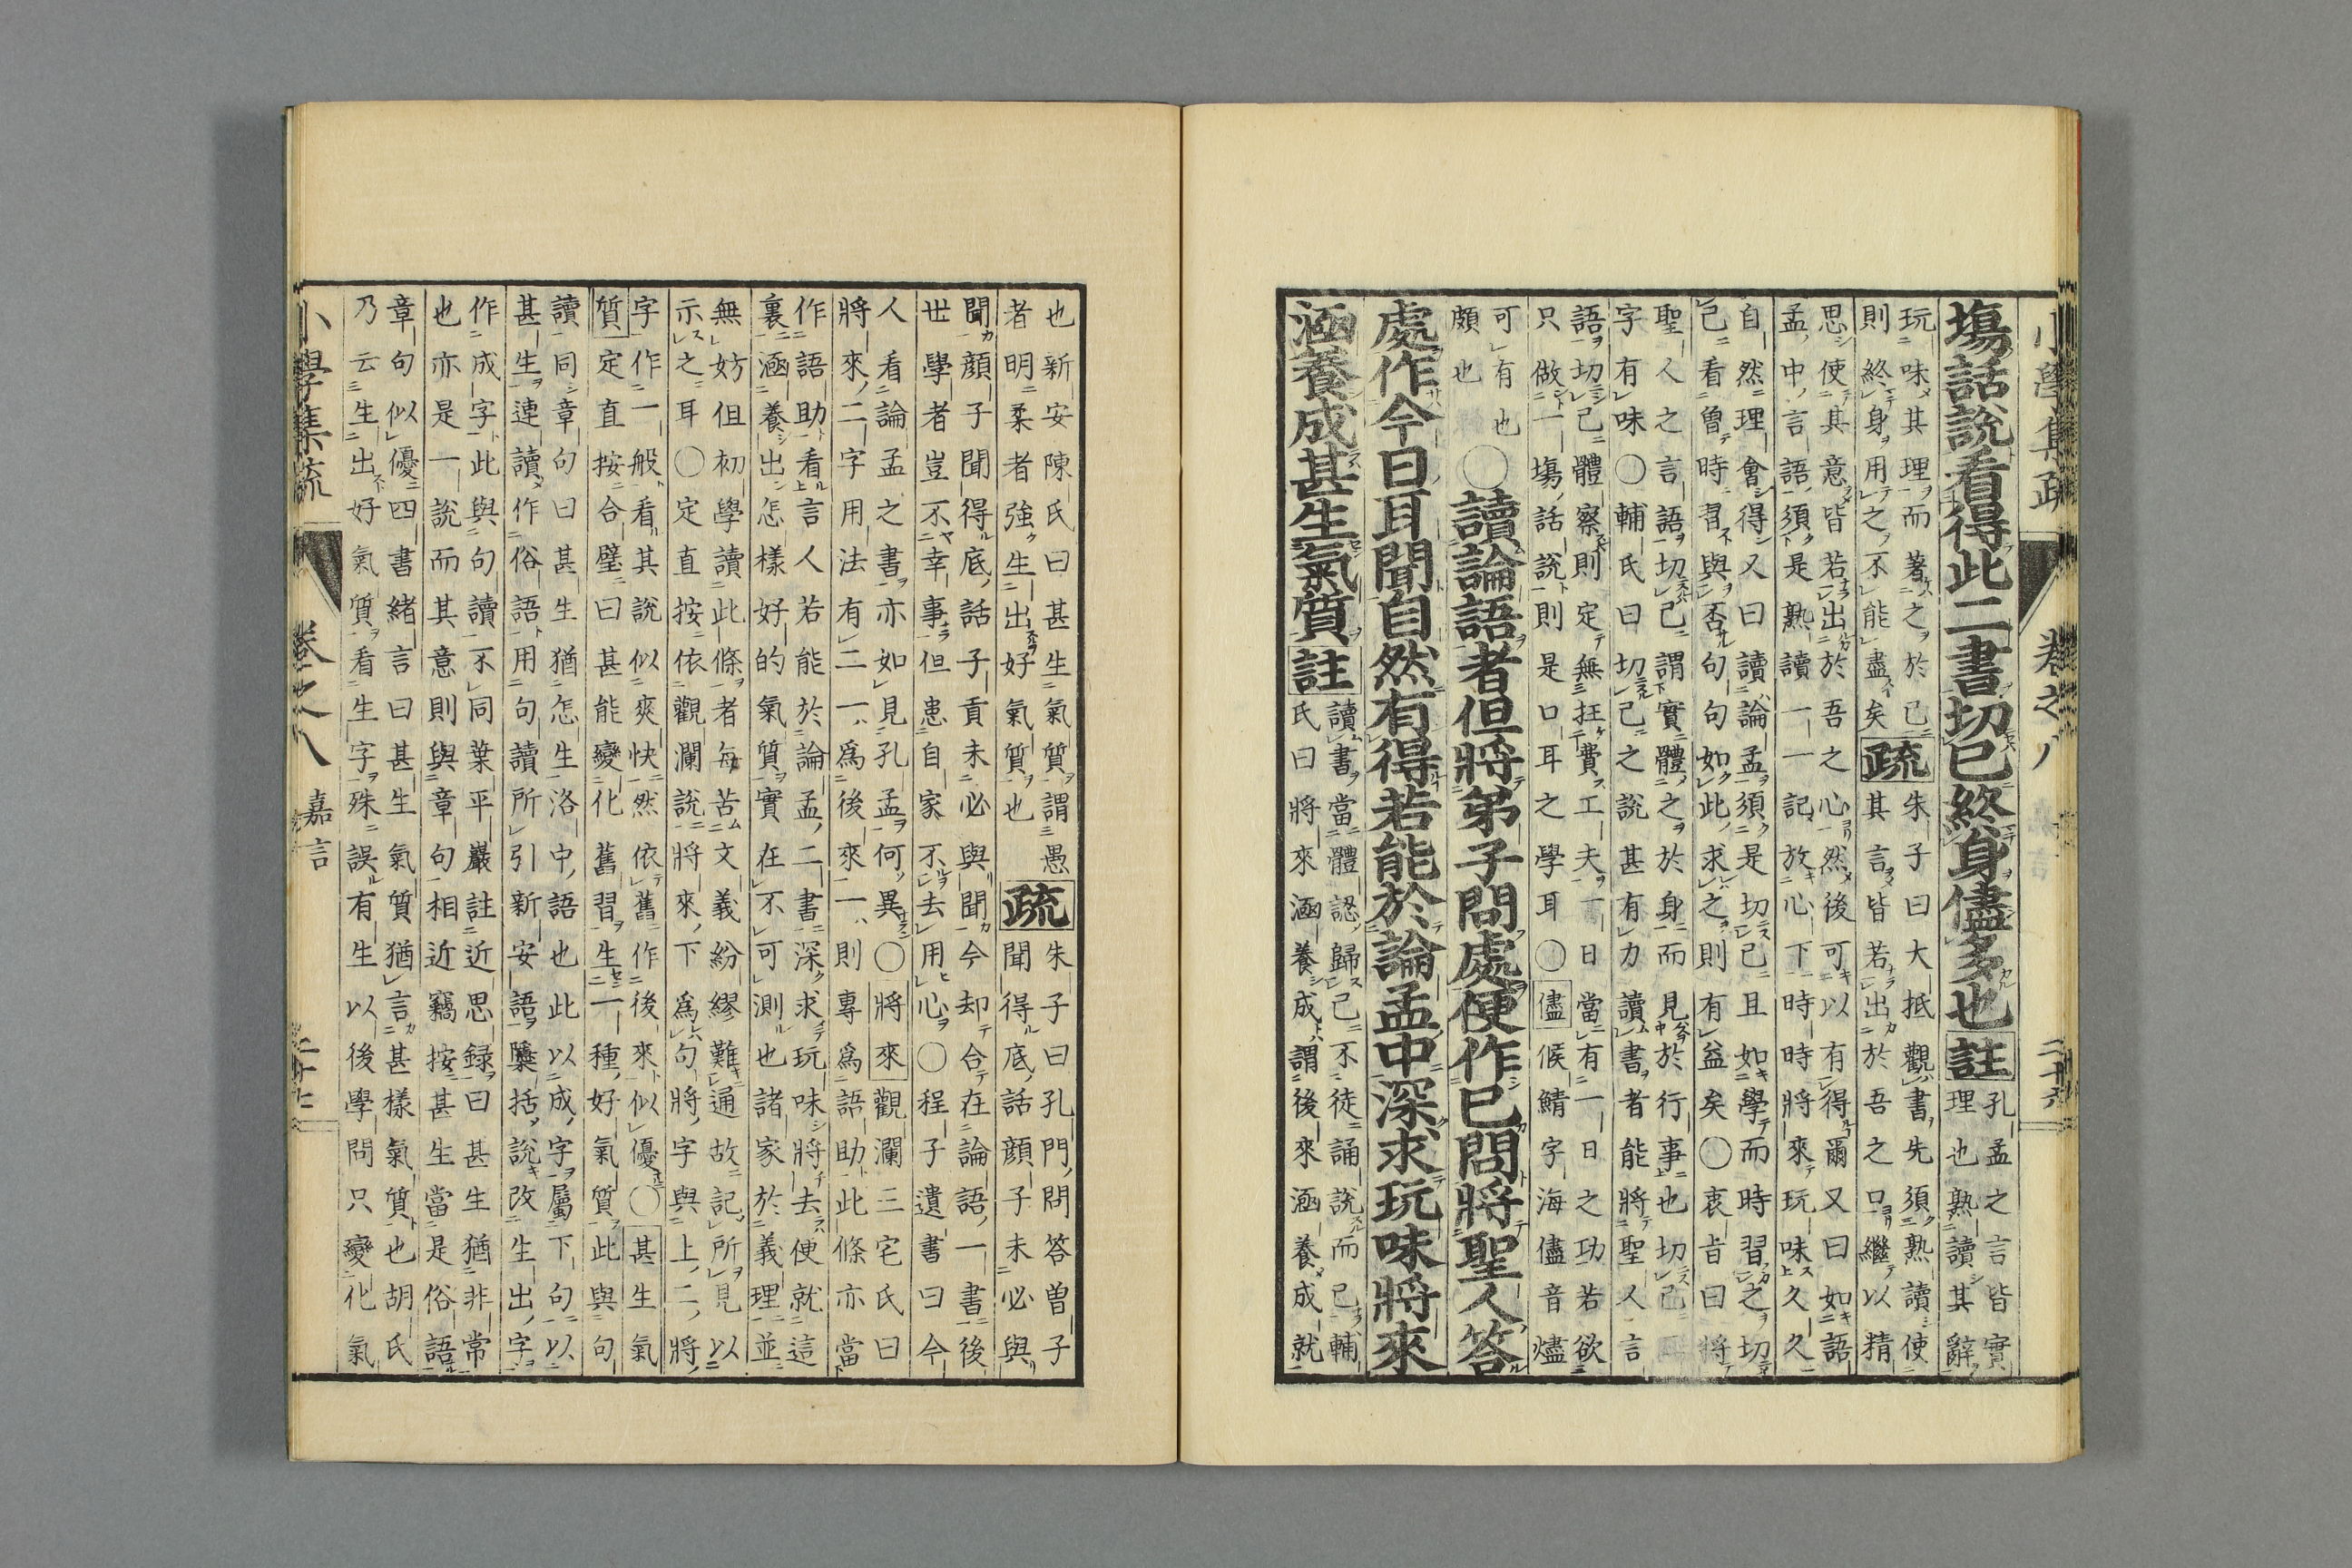 小學集疏 卷之八 二十六
塲話說看得此二書切己終身儘多也註孔孟之言皆實
理也熟讀其辭
玩味其理而著之於己
則終身用之不能盡矣疏朱子曰大抵觀書先須熟讀使
其言皆若出於吾之口繼以精
思使其意皆若出於吾之心然後可以有得爾又曰如語
孟中言語須是熟讀一一記放心下時時將來玩味久久
自然理會得又曰讀論孟須是切己且如學而時習之切
己看曾時習與否句句如此求之則有益矣○衷旨曰將
聖人之言語切己謂實體之於身而見於行事也切己
字有味○輔氏曰切己之說甚有力讀書者能將聖人言
語切己體察則定無枉費工夫一日當有一日之功若欲
只做一塲話說則是口耳之學耳○儘候鯖字海儘音燼
可有也
頗也
○讀論語者但將弟子問處便作己問將聖人答
處作今日耳聞自然有得若能於論孟中深求玩味將來
涵養成甚生氣質註讀書當體認歸己不徒誦說而已輔
氏曰將來涵養成謂後來涵養成就
也新安陳氏曰甚生氣質謂愚
者明柔者強生出好氣質也疏朱子曰孔門問答曾子
聞得底話顏子未必與
聞顏子聞得底話子貢未必與聞今却合在論語一書後
世學者豈不幸事但患自家不去用心○程子遺書曰今
人看論孟之書亦如見孔孟何異○將來觀瀾三宅氏曰
將來二字用法有二一爲後來一則專爲語助此條亦當
作語助看言人若能於論孟二書深求玩味將去便就這
裏涵養出怎樣好的氣質實在不可測也諸家於義理並
無妨但初學讀此條者每苦文義紛繆難通故記所見以
示之耳○定直按依觀瀾說將來下爲句將字與上二將
字作一般看其說似爽快然依舊作後來似優○甚生氣
質定直按合璧曰甚能變化舊習生一種好氣質此與句
讀同章句曰甚生猶怎生洛中語也此以成字屬下句以
甚生連讀作俗語用句讀所引新安語檃括說改生出字
作成字此與句讀不同葉平巖註近思録曰甚生猶非常
也亦是一說而其意則與章句相近竊按甚生當是俗語
章句似優四書緒言曰甚生氣質猶言甚樣氣質也胡氏
乃云生出好氣質看生字殊誤有生以後學問只變化氣
小學集疏 卷之八 嘉言